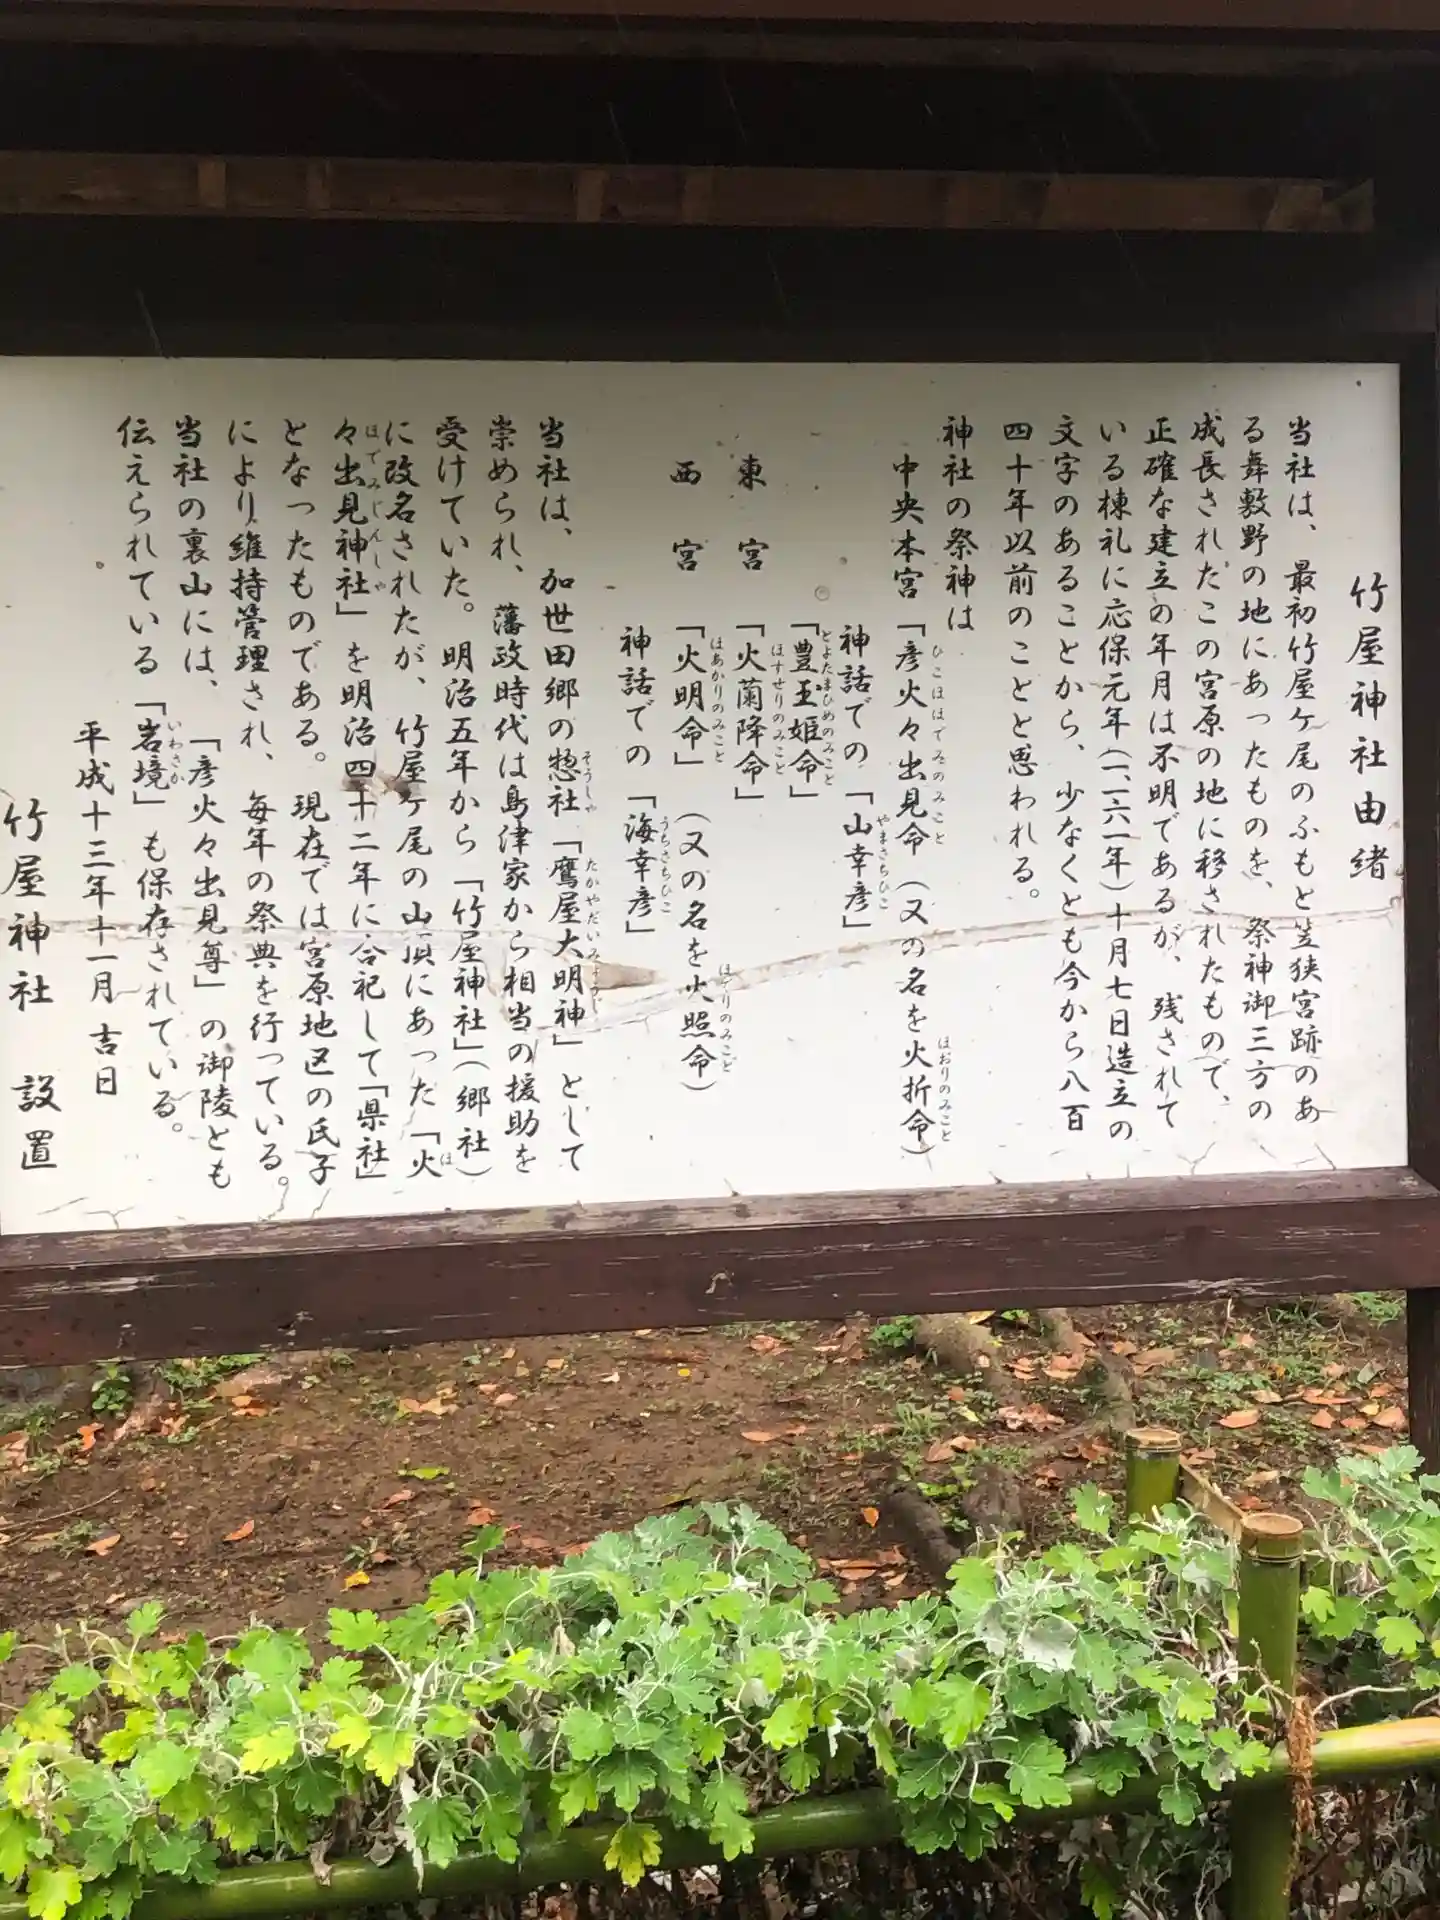 竹屋神社由緒
当社は、最初竹屋ヶ尾のふもと笠狭宮跡のあ
る舞敷野の地にあったものを、祭神御三方の
成長されたこの宮原の地に移されたもので、
正確な建立の年月は不明であるが、残されて
いる棟札に応保元年(一一六一年)十月七日造立の
文字のあることから、少なくとも今から八百
四十年以前のことと思われる。
神社の祭神は
中央本宮「彦火々出見命(又の名を火折命)
ひこほほでみのみこと
ほおりのみこと
神話での「山幸彦」
やまさちひこ
「豊玉姫命」
とよたまひめのみこと
東宮「火蘭降命」
ほすせりのみこと
西宮「火明命」(又の名を火照命)
ほあかりのみこと
ほでりのみこと
神話での「海幸彦」
うちさちひこ
当社は、加世田郷の惣社「鷹屋大明神」として
そうしゃ
たかやだいみょうじ
崇められ、藩政時代は島津家から相当の援助を
受けていた。明治五年から「竹屋神社」(郷社)
に改名されたが、竹屋ヶ尾の山頂にあった「火
ほ
々出見神社」を明治四十二年に合祀して「県社」
ほでみじんしゃ
となったものである。現在では宮原地区の氏子
により維持管理され、毎年の祭典を行っている。
当社の裏山には、「彦火々出見尊」の御陵とも
伝えられている「岩境」も保存されている。
いわさか
平成十三年十一月吉日
竹屋神社 設置